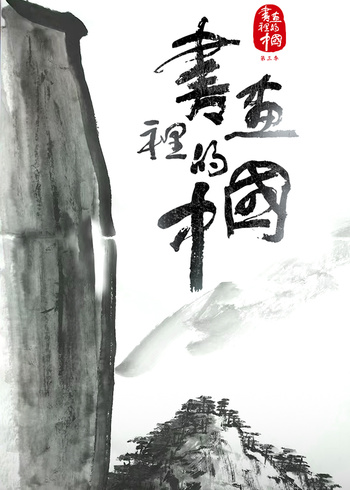 書画裡的中國
第三季
書画
裡的
中國